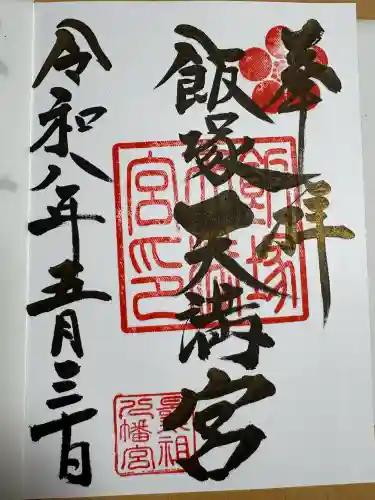 奉拝
飯塚天満宮
令和八年五月三十日
飯塚
天満
宮印
曩祖
八幡宮